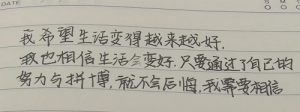 DATE
我希望生活变得越来越好.
我也相信生活会变好.只要通过了自己的
努力与拼博,就不会后悔.我需要相信